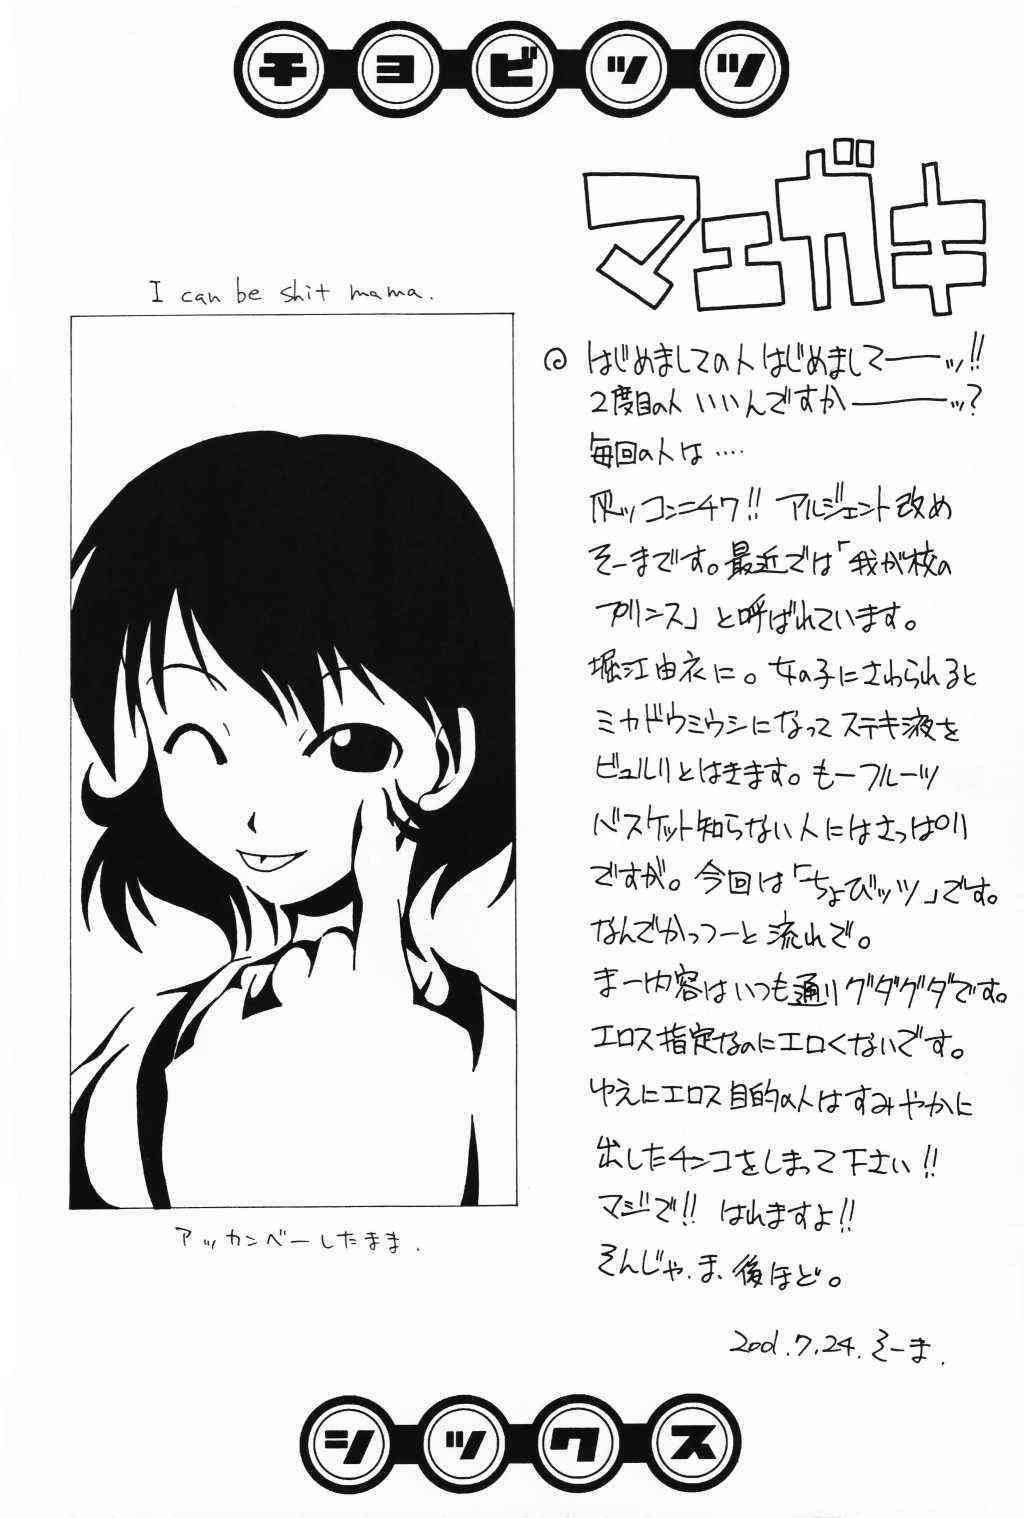 チョビッツ
マエガキ
I can be shit mama.
アッカンベーしたまま.
◎ はじめましての人 はじめまして――ッ!!
2度目の人 いいんですか――ッ?
毎回の人は‥‥
灰ッコンニチワ!! アルジェント改め
そーまです。最近では「我が校の
プリンス」と呼ばれています。
堀江由衣に。女の子にさわられると
ミカドウミウシになってステキ液を
ビュルリとはきます。もーフルーツ
バスケット知らない人にはさっぱり
ですが。今回は「ちょびッツ」です。
なんでかっつーと流れで。
まー内容はいつも通りグダグダです。
エロス指定なのにエロくないです。
ゆえにエロス目的の人はすみやかに
出したチンコをしまって下さい!!
マジで!! はれますよ!!
そんじゃ、ま、後ほど。
2001.7.24.そーま.
シックス